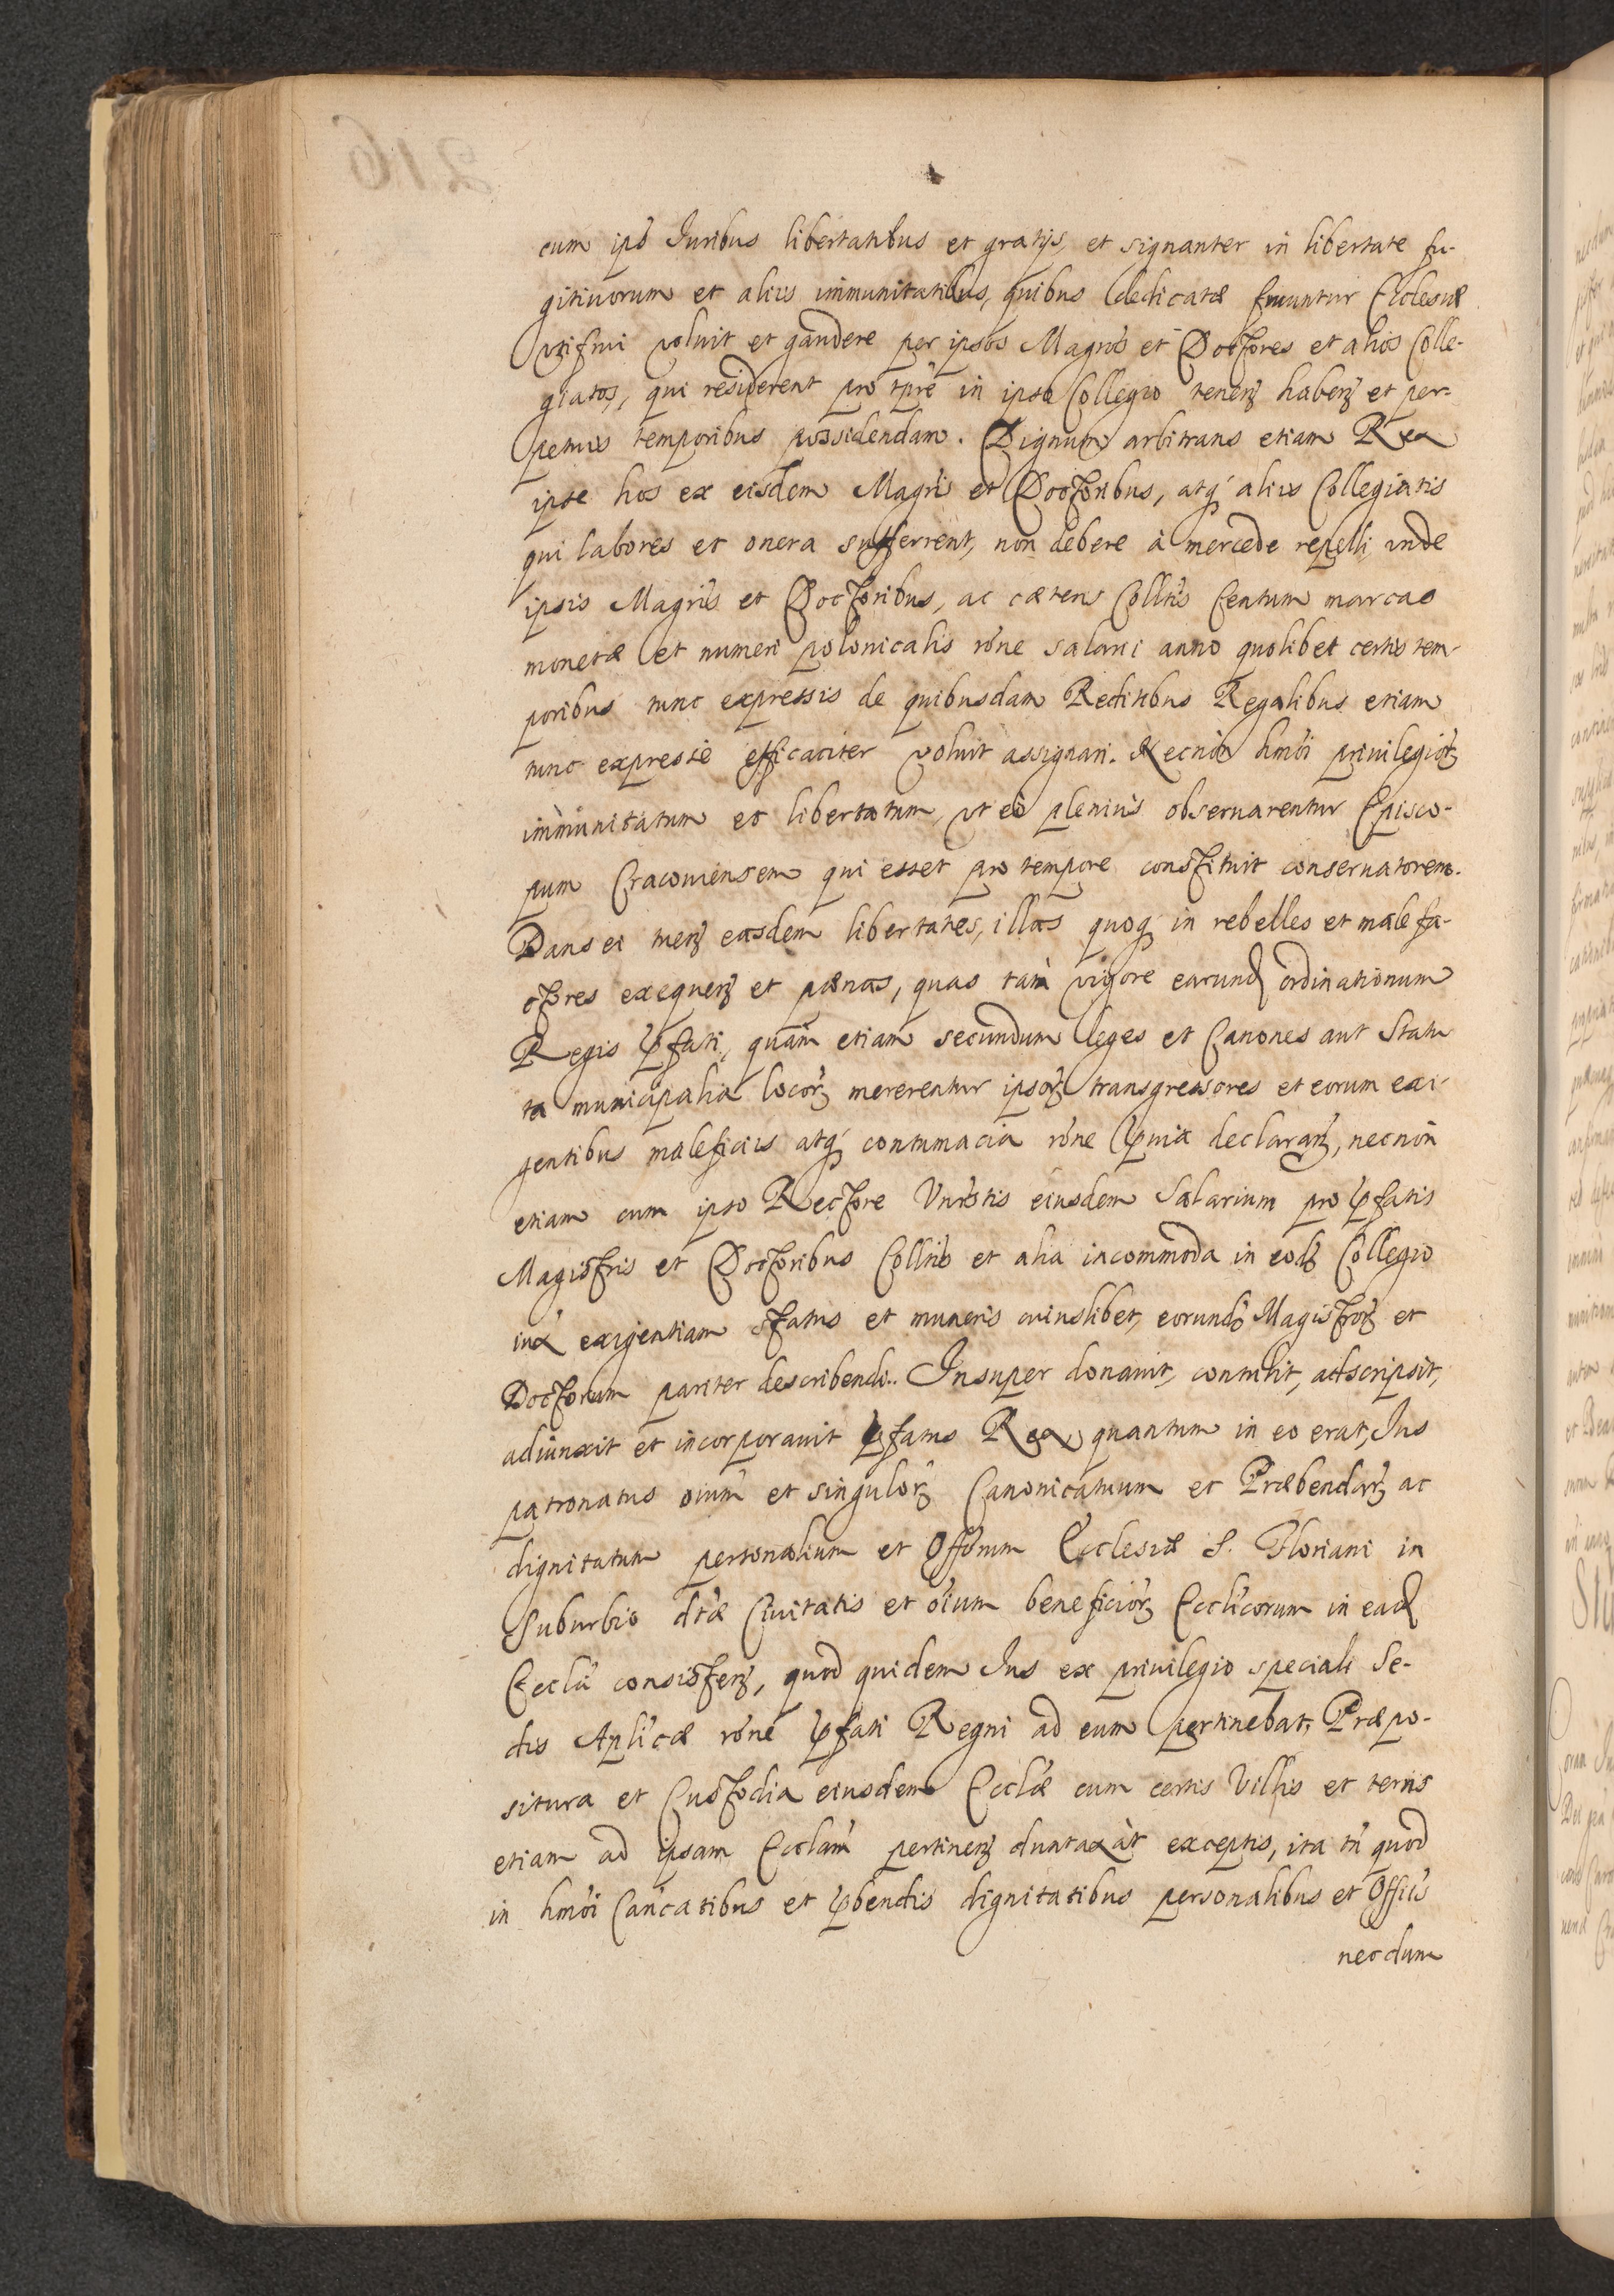 cum ips Iuribus libertatibus et gratijs, et signanter in libertate fu-
gitiuorum et aliis immunitatibus, quibus dedicatæ fruuntur Ecclesiæ
vti frui voluit et gaudere per ipsos Magros et Doctores et alios Colle-
giatos, qui residerent pro tpre in ipso Collegio tenenꝫ habenꝫ et per-
petuis temporibus possidendam. Dignum arbitrans etiam Rex
ipse hos ex eisdem Magris et Doctoribus, atqꝫ aliis Collegiatis
qui labores et onera sufferrent, non debere à mercede repelli, vnde
ipsis Magris et Doctoribus, ac cæteris Colltis Centum marcas
monetæ et numeri polonicalis rone salarii anno quolibet certis tem-
poribus tunc expressis de quibusdam Reditibus Regalibus etiam
tunc expressè efficaciter voluit assignari. Necnòn hmoi priuilegioꝝ
immunitatum et libertatum, vt eò pleniùs obseruarentur Episco-
pum Cracouiensem qui esset pro tempore constituit conseruatorem.
Dans ei tuenꝫ easdem libertates, illas quoqꝫ in rebelles et malefa-
ctores exequenꝫ et pænas, quas tàm vigore earund ordinationum
Regis pfati, quàm etiam secundum leges et Canones aut Statu
ta municipalia locoꝝ mererentur ipsoꝝ transgressores et eorum exi-
gentibus maleficiis atqꝫ contumacia rone pruia declaranꝫ, necnòn
etiam cum ipso Rectore Vnirstis eiusdem Salarium pro pfatis
Magistris et Doctoribus Colltis et alia incommoda in eodꝫ Collegio
iux exigentiam status et muneris cuiuslibet, eorundꝫ Magistroꝝ et
Doctorum pariter describendi.. Insuper donauit, contulit, adscripsit,
adiunxit et incorporauit pfatus Rex quantum in eo erat, Ius
patronatus oium et singuloꝝ Canonicatuum et Præbendaꝝ ac
dignitatum personalium et Offorum Ecclesiæ S. Floriani in
Suburbio dtæ Ciuitatis et oium beneficioꝝ Ecclicorum in ead
Ecclia consistenꝫ, quod quidem Ius ex priuilegio speciali Se-
dis Aplicæ rone pfati Regni ad eum pertinebat, Præpo-
situra et Custodia eiusdem Eccliæ cum certis Villis et terris
etiam ad ipsam Ecclam pertinenꝫ duntaxàt exceptis, ita tn quod
in hmoi Cancatibus et pbendis dignitatibus personalibus et Offiis
necdum